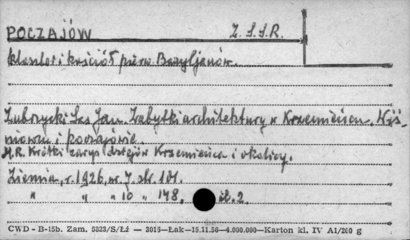 POCZAJÓW Z.S.S.R.
klasztor i kościół pierw. Bazyljanów.
Zubrzycki Des Jan. Zabytki architektury w Krzemieńcu, Wiś-
niowcu i Poczajowie.
M.R. Krótki zarys dziejów Krzemieńca i okolicy.
Ziemia, r. 1926, nr 7, str. 101.
" " " 10 " 148, il. 2.
CWD - B-15b. Zam. 5823/S/Łż — 3013—Łak—15.11.56—4.000.000—Karton kl. IV A1/200 g